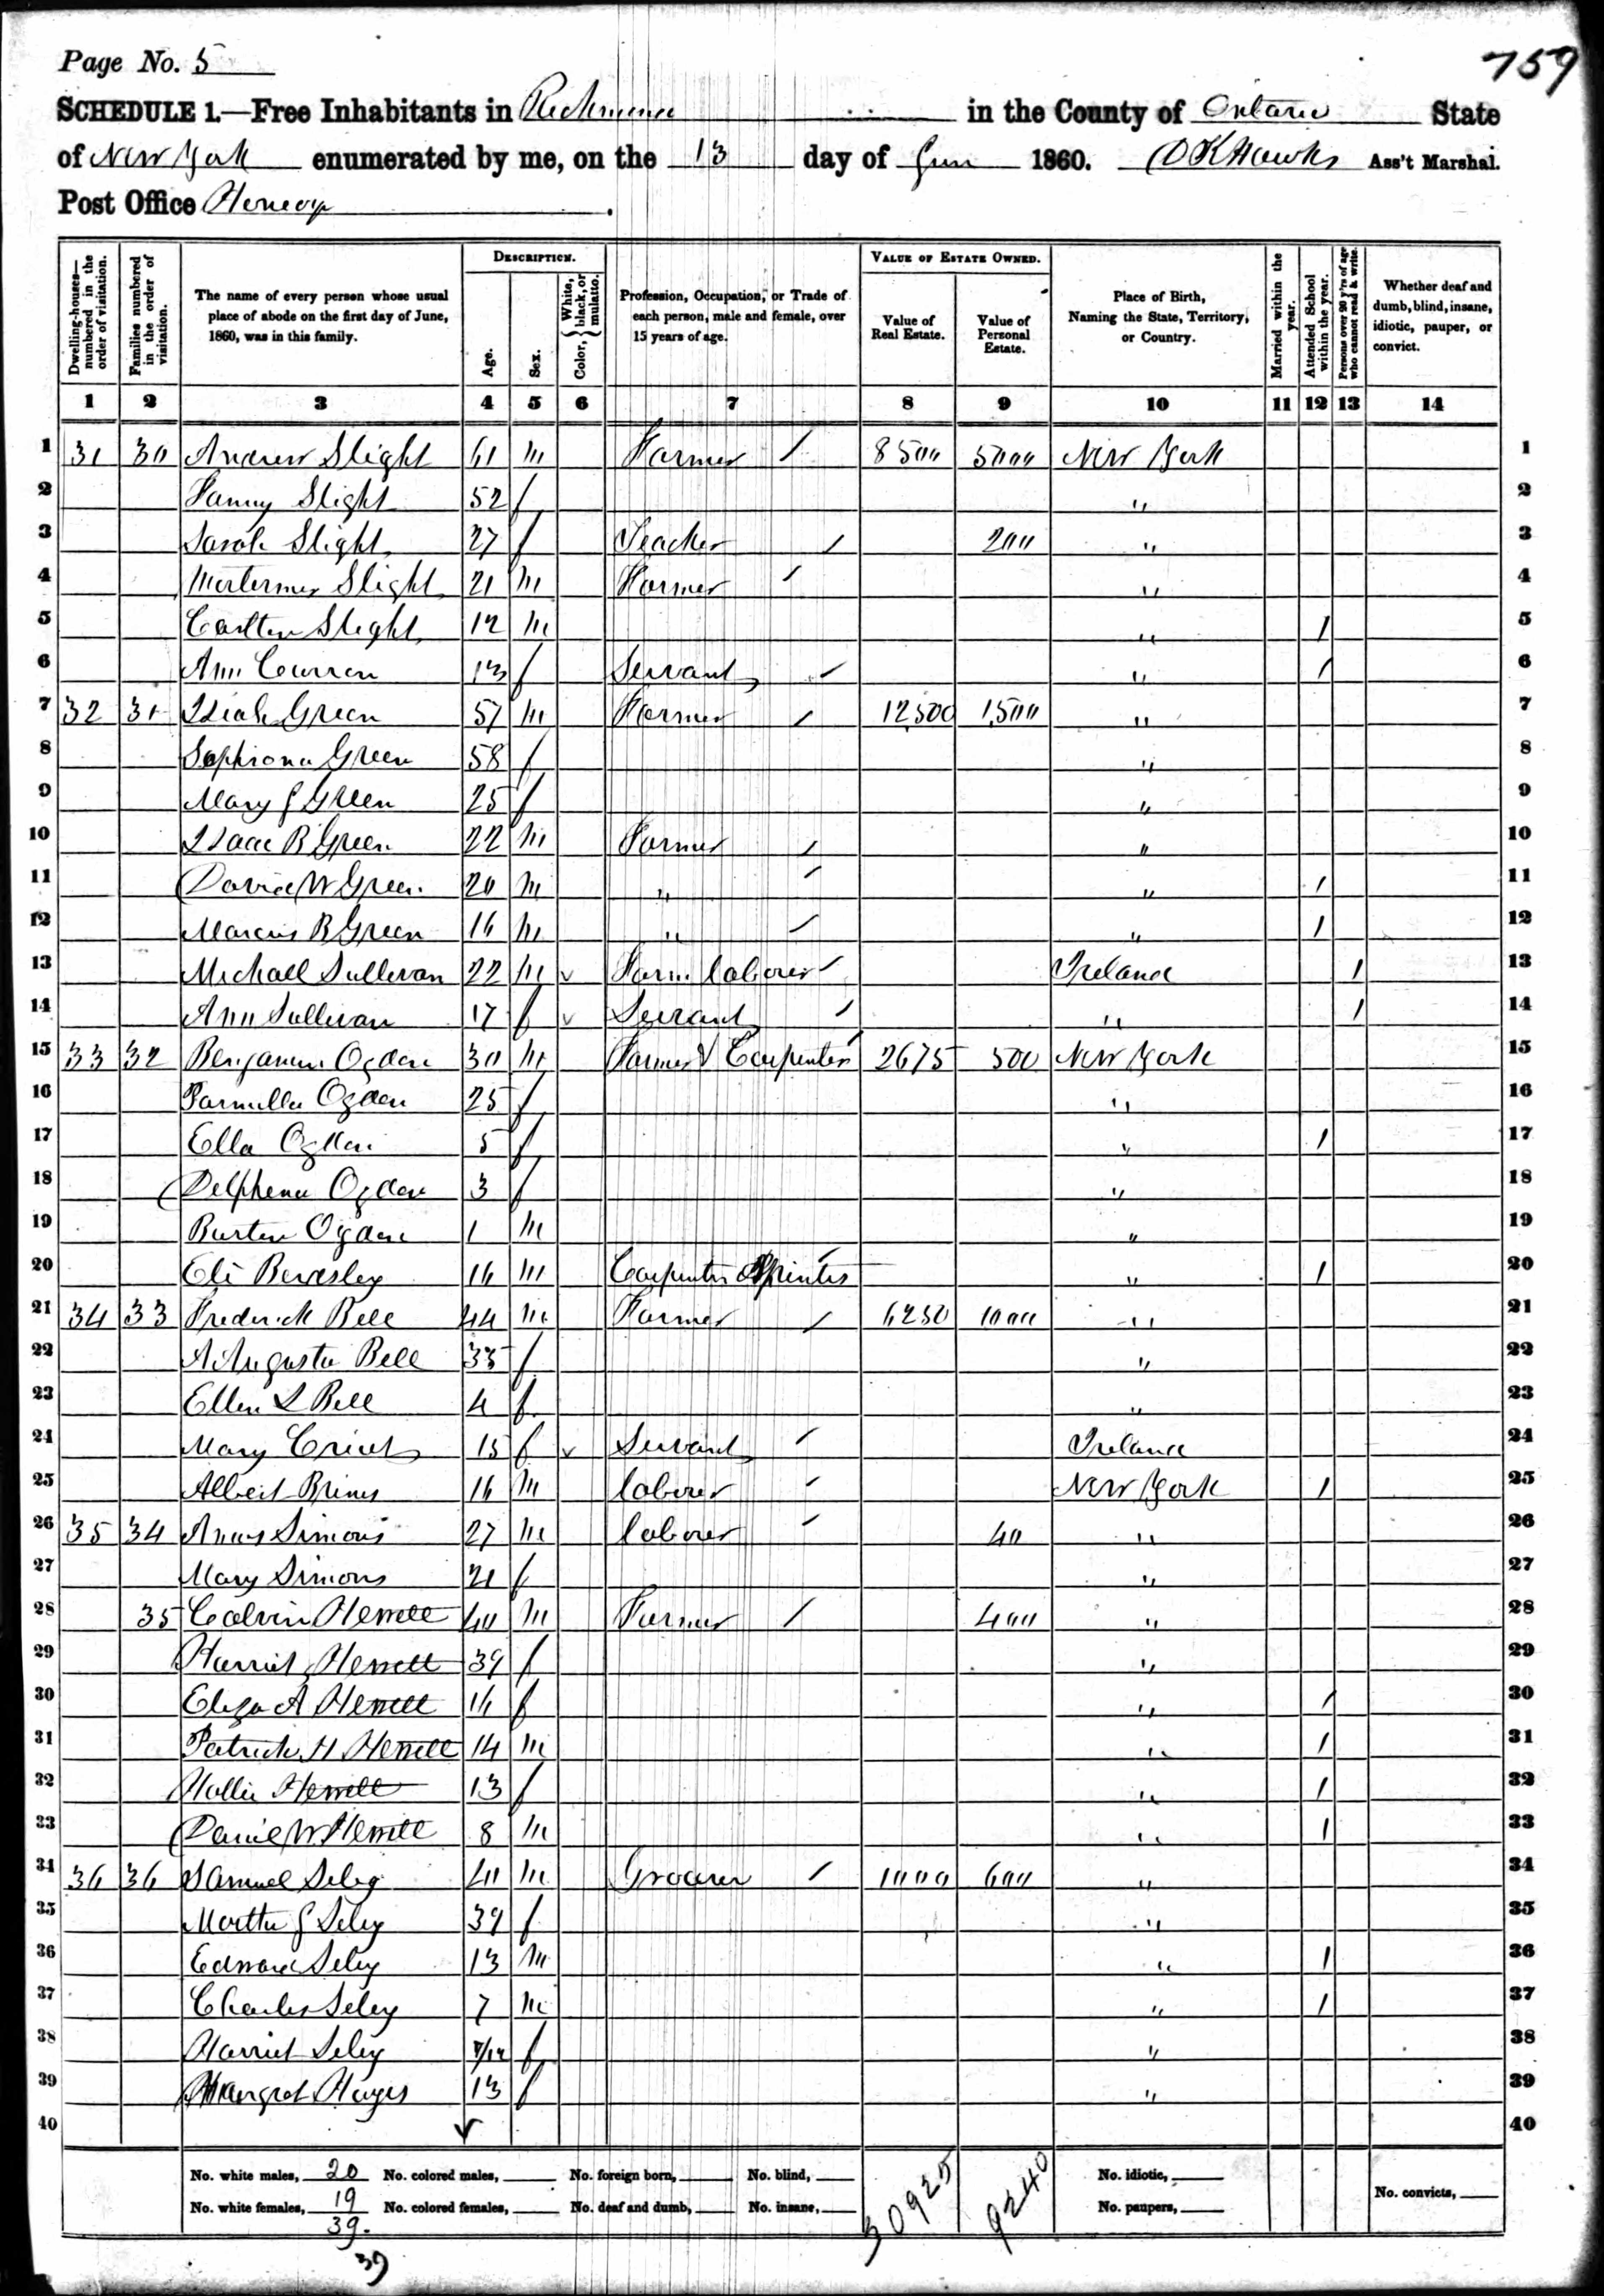 Page No. 5
759
SCHEDULE 1.—Free Inhabitants in Richmond in the County of Ontario State
of New York enumerated by me, on the 13 day of June 1860. O K Hawks Ass't Marshal.
Post Office Honeoye
Dwelling-houses—numbered in the order of visitation.
Families numbered in the order of visitation.
The name of every person whose usual place of abode on the first day of June, 1860, was in this family.
DESCRIPTION.
Age.
Sex.
Color, { White, black, or mulatto.
Profession, Occupation, or Trade of each person, male and female, over 15 years of age.
VALUE OF ESTATE OWNED.
Value of Real Estate.
Value of Personal Estate.
Place of Birth, Naming the State, Territory, or Country.
Married within the year.
Attended School within the year.
Persons over 20 y'rs of age who cannot read & write.
Whether deaf and dumb, blind, insane, idiotic, pauper, or convict.
1 2 3 4 5 6 7 8 9 10 11 12 13 14
1 31 30 Andrew Slight 61 m Farmer / 8500 5000 New York 1
2 Fanny Slight 52 f " 2
3 Sarah Slight 27 f Teacher / 200 " 3
4 Mortimer Slight 21 m Farmer / " 4
5 Carlton Slight 12 m " / 5
6 Ann Curren 13 f Servant / " / 6
7 32 31 Green 57 m Farmer / 12500 1500 " 7
8 Green 58 f " 8
9 Mary J Green 25 f " 9
10 Isaac B Green 22 m Farmer / " 10
11 David W Green 20 m " / " / 11
12 Marcus B Green 16 m " / " / 12
13 Michall Sullivan 22 m v Farm laborer / Ireland / 13
14 Ann Sullivan 17 f v Servant / " / 14
15 33 32 Benjamin Ogden 30 m Farmer & Carpenter / 2675 500 New York 15
16 Ogden 25 f " 16
17 Ella Ogden 5 f " / 17
18 Delphena Ogden 3 f " 18
19 Burton Ogden 1 m " 19
20 Eli 16 m Carpenter / " / 20
21 34 33 Frederick Bell 44 m Farmer / 6250 1000 " 21
22 A Augusta Bell 35 f " 22
23 Ellen L Bell 4 f " 23
24 Mary 15 f v Servant / Ireland 24
25 Albert 16 m laborer / New York / 25
26 35 34 Simons 27 m laborer / 40 " 26
27 Mary Simons 21 f " 27
28 35 Calvin Hewett 40 m Farmer / 400 " 28
29 Harriet Hewett 39 f " 29
30 Eliza A Hewett 16 f " / 30
31 Patrick H Hewett 14 m " / 31
32 Hewett 13 f " / 32
33 Daniel W Hewett 8 m " / 33
34 36 36 Samuel Seley 40 m Grocer / 1000 600 " 34
35 Martha J Seley 39 f " 35
36 Edward Seley 13 m " / 36
37 Charles Seley 7 m " / 37
38 Harriet Seley f " 38
39 Margret Hayes 13 f " 39
40 40
No. white males, 20 No. colored males, No. foreign born, No. blind, 30925 9240 No. idiotic,
No. white females, 19 No. colored females, No. deaf and dumb, No. insane, No. paupers, No. convicts,
39.
39